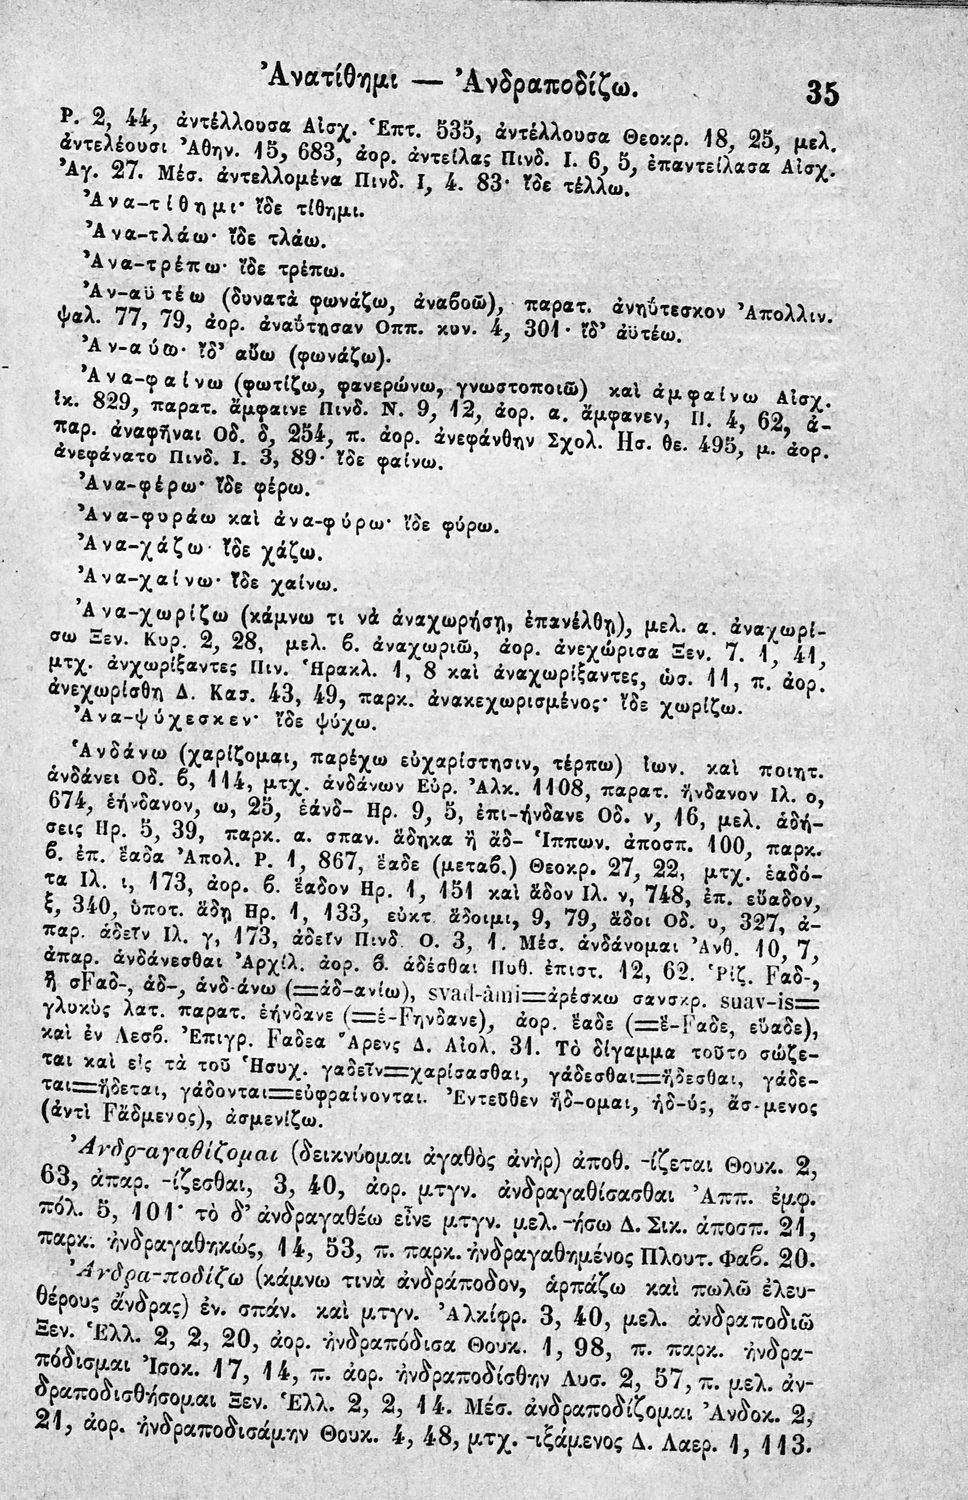 Ἀνατίθημι — Ἀνδραποδίζω. 35
Ρ. 2, 44, ἀντέλλουσα Αἰσχ. Ἑπτ. 535, ἀντέλλουσα Θεοκρ. 18, 25, μελ.
ἀντελέουσι Ἀθην. 15, 683, ἀορ. ἀντείλας Πινδ. Ι. 6, 5, ἐπαντείλασα Αἰσχ.
Ἀγ. 27. Μέσ. ἀντελλομένα Πινδ. Ι, 4. 83· ἴδε τέλλω.
Ἀνα-τίθημι· ἴδε τίθημι.
Ἀνα-τλάω· ἴδε τλάω.
Ἀνα-τρέπω· ἴδε τρέπω.
Ἀν-αϋτέω (δυνατὰ φωνάζω, ἀναβοῶ), παρατ. ἀνηΰτεσκον Ἀπολλιν.
ψαλ. 77, 79, ἀορ. ἀναΰτησαν Οππ. κυν. 4, 301· ἴδ’ ἀϋτέω.
Ἀν-αύω· ἴδ’ αὔω (φωνάζω).
Ἀνα-φαίνω (φωτίζω, φανερώνω, γνωστοποιῶ) καὶ ἀμφαίνω Αἰσχ.
ἱκ. 829, παρατ. ἄμφαινε Πινδ. Ν. 9, 12, ἀορ. α. ἄμφανεν, Π. 4, 62, ἀ-
παρ. ἀναφῆναι Οδ. δ, 254, π. ἀορ. ἀνεφάνθην Σχολ. Ησ. θε. 495, μ. ἀορ.
ἀνεφάνατο Πινδ. Ι. 3, 89· ἴδε φαίνω.
Ἀνα-φέρω· ἴδε φέρω.
Ἀνα-φυράω καὶ ἀνα-φύρω· ἴδε φύρω.
Ἀνα-χάζω· ἴδε χάζω.
Ἀνα-χαίνω· ἴδε χαίνω.
Ἀνα-χωρίζω (κάμνω τι νὰ ἀναχωρήσῃ, ἐπανέλθῃ), μελ. α. ἀναχωρί-
σω Ξεν. Κυρ. 2, 28, μελ. β. ἀναχωριῶ, ἀορ. ἀνεχώρισα Ξεν. 7. 1, 41,
μτχ. ἀνχωρίξαντες Πιν. Ἡρακλ. 1, 8 καὶ ἀναχωρίξαντες, ὡσ. 11, π. ἀορ.
ἀνεχωρίσθη Δ. Κασ. 43, 49, παρκ. ἀνακεχωρισμένος· ἴδε χωρίζω.
Ἀνα-ψύχεσκεν· ἴδε ψύχω.
Ἁνδάνω (χαρίζομαι, παρέχω εὐχαρίστησιν, τέρπω) ἰων. καὶ ποιητ.
ἁνδάνει Οδ. β, 114, μτχ. ἁνδάνων Εὐρ. Ἀλκ. 1108, παρατ. ἥνδανον Ιλ. ο,
674, ἑήνδανον, ω, 25, ἑάνδ- Ηρ. 9, 5, ἐπι-ήνδανε Οδ. ν, 16, μελ. ἁδή-
σεις Ηρ. 5, 39, παρκ. α. σπαν. ἅδηκα ἢ ἄδ- Ἱππων. ἀποσπ. 100, παρκ.
β. ἐπ. ἕαδα Ἀπολ. Ρ. 1, 867, ἕαδε (μεταβ.) Θεοκρ. 27, 22, μτχ. ἑαδό-
τα Ιλ. ι, 173, ἀορ. β. ἕαδον Ηρ. 1, 151 καὶ ἅδον Ιλ. ν, 748, ἐπ. εὔαδον,
ξ, 340, ὑποτ. ἅδῃ Ηρ. 1, 133, εὐκτ. ἅδοιμι, 9, 79, ἅδοι Οδ. υ, 327, ἀ-
παρ. ἁδεῖν Ιλ. γ, 173, ἁδεῖν Πινδ. Ο. 3, 1. Μέσ. ἁνδάνομαι Ἀνθ. 10, 7,
ἀπαρ. ἁνδάνεσθαι Ἀρχίλ. ἀορ. β. ἁδέσθαι Πυθ. ἐπιστ. 12, 62. Ῥίζ. Fαδ-,
ἢ σFαδ-, ἁδ-, ἁνδ-άνω (=ἁδ-ανίω), svad-âmi=ἀρέσκω σανσκρ. suav-is=
γλυκὺς λατ. παρατ. ἑήνδανε (=ἐ-Fηνδανε), ἀορ. ἕαδε (=ἔ-Fαδε, εὔαδε),
καὶ ἐν Λεσβ. Ἐπιγρ. Fαδεα Ἀρενς Δ. Αἰολ. 31. Τὸ δίγαμμα τοῦτο σώζε-
ται καὶ εἰς τὰ τοῦ Ἡσυχ. γαδεῖν=χαρίσασθαι, γάδεσθαι=ἥδεσθαι, γάδε-
ται=ἥδεται, γάδονται=εὐφραίνονται. Ἐντεῦθεν ἥδ-ομαι, ἡδ-ύς, ἄσ-μενος
(ἀντὶ Fάδμενος), ἀσμενίζω.
Ἀνδρ-αγαθίζομαι (δεικνύομαι ἀγαθὸς ἀνὴρ) ἀποθ. -ίζεται Θουκ. 2,
63, ἀπαρ. -ίζεσθαι, 3, 40, ἀορ. μτγν. ἀνδραγαθίσασθαι Ἀππ. ἐμφ.
πόλ. 5, 101· τὸ δ’ ἀνδραγαθέω εἶνε μτγν. μελ. -ήσω Δ. Σικ. ἀποσπ. 21,
παρκ. ἠνδραγαθηκώς, 14, 53, π. παρκ. ἠνδραγαθημένος Πλουτ. Φαβ. 20.
Ἀνδρα-ποδίζω (κάμνω τινὰ ἀνδράποδον, ἁρπάζω καὶ πωλῶ ἐλευ-
θέρους ἄνδρας) ἐν. σπάν. καὶ μτγν. Ἀλκίφρ. 3, 40, μελ. ἀνδραποδιῶ
Ξεν. Ἑλλ. 2, 2, 20, ἀορ. ἠνδραπόδισα Θουκ. 1, 98, π. παρκ. ἠνδρα-
πόδισμαι Ἰσοκ. 17, 14, π. ἀορ. ἠνδραποδίσθην Λυσ. 2, 57, π. μελ. ἀν-
δραποδισθήσομαι Ξεν. Ἑλλ. 2, 2, 14. Μέσ. ἀνδραποδίζομαι Ἀνδοκ. 2,
21, ἀορ. ἠνδραποδισάμην Θουκ. 4, 48, μτχ. -ιξάμενος Δ. Λαερ. 1, 113.